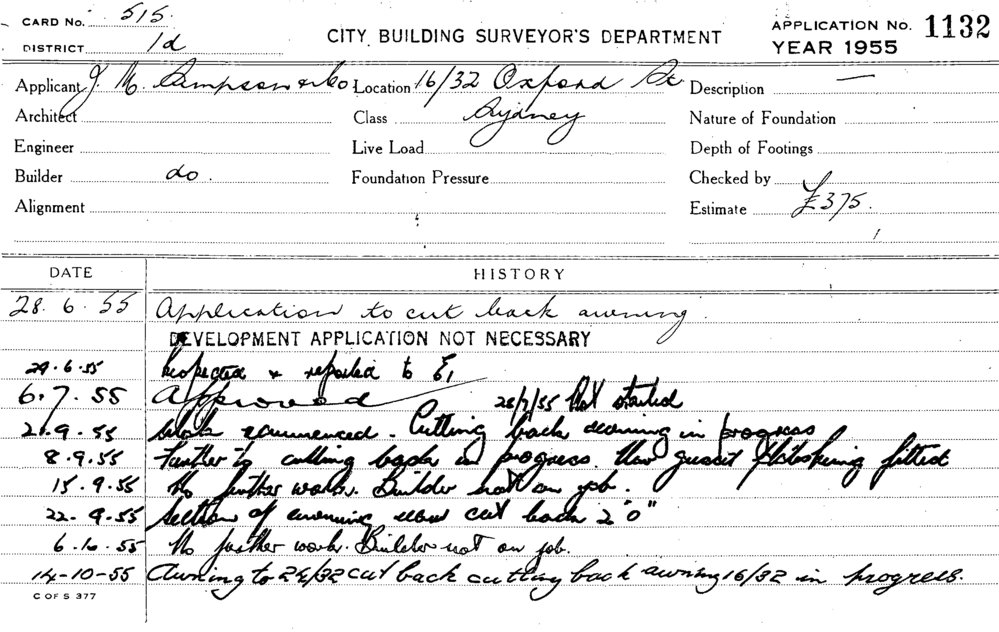 CARD No. 515.
DISTRICT 1d
CITY BUILDING SURVEYOR'S DEPARTMENT
APPLICATION No. 1132
YEAR 1955
Applicant J. M. Sampson & Co. Location 16/32 Oxford St Description —
Architect Class Sydney Nature of Foundation
Engineer Live Load Depth of Footings
Builder do. Foundation Pressure Checked by
Alignment Estimate £375.
DATE HISTORY
28.6.55 Application to cut back awning.
DEVELOPMENT APPLICATION NOT NECESSARY
29.6.55 Inspected & reported to E1
6.7.55 Approved 28/7/55 Not started
2.9.55 Work commenced. Cutting back awning in progress
8.9.55 cutting back in progress. New gusset fitted
15.9.55 No further work. Builder not on job.
22.9.55 Section of awning now cut back 2'0"
6.10.55 No further work. Builder not on job.
14-10-55 Awning to 24/32 cut back cutting back awning 16/32 in progress.
C OF S 377